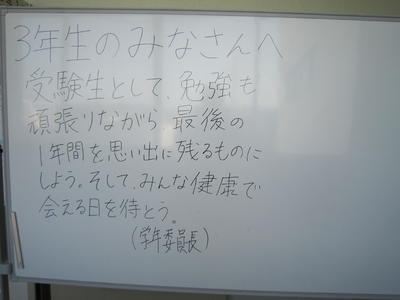 3年生のみなさんへ
受験生として、勉強も
頑張りながら、最後の
1年間を思い出に残るものに
しよう。そして、みんな健康で
会える日を待とう。
(学年委員長)